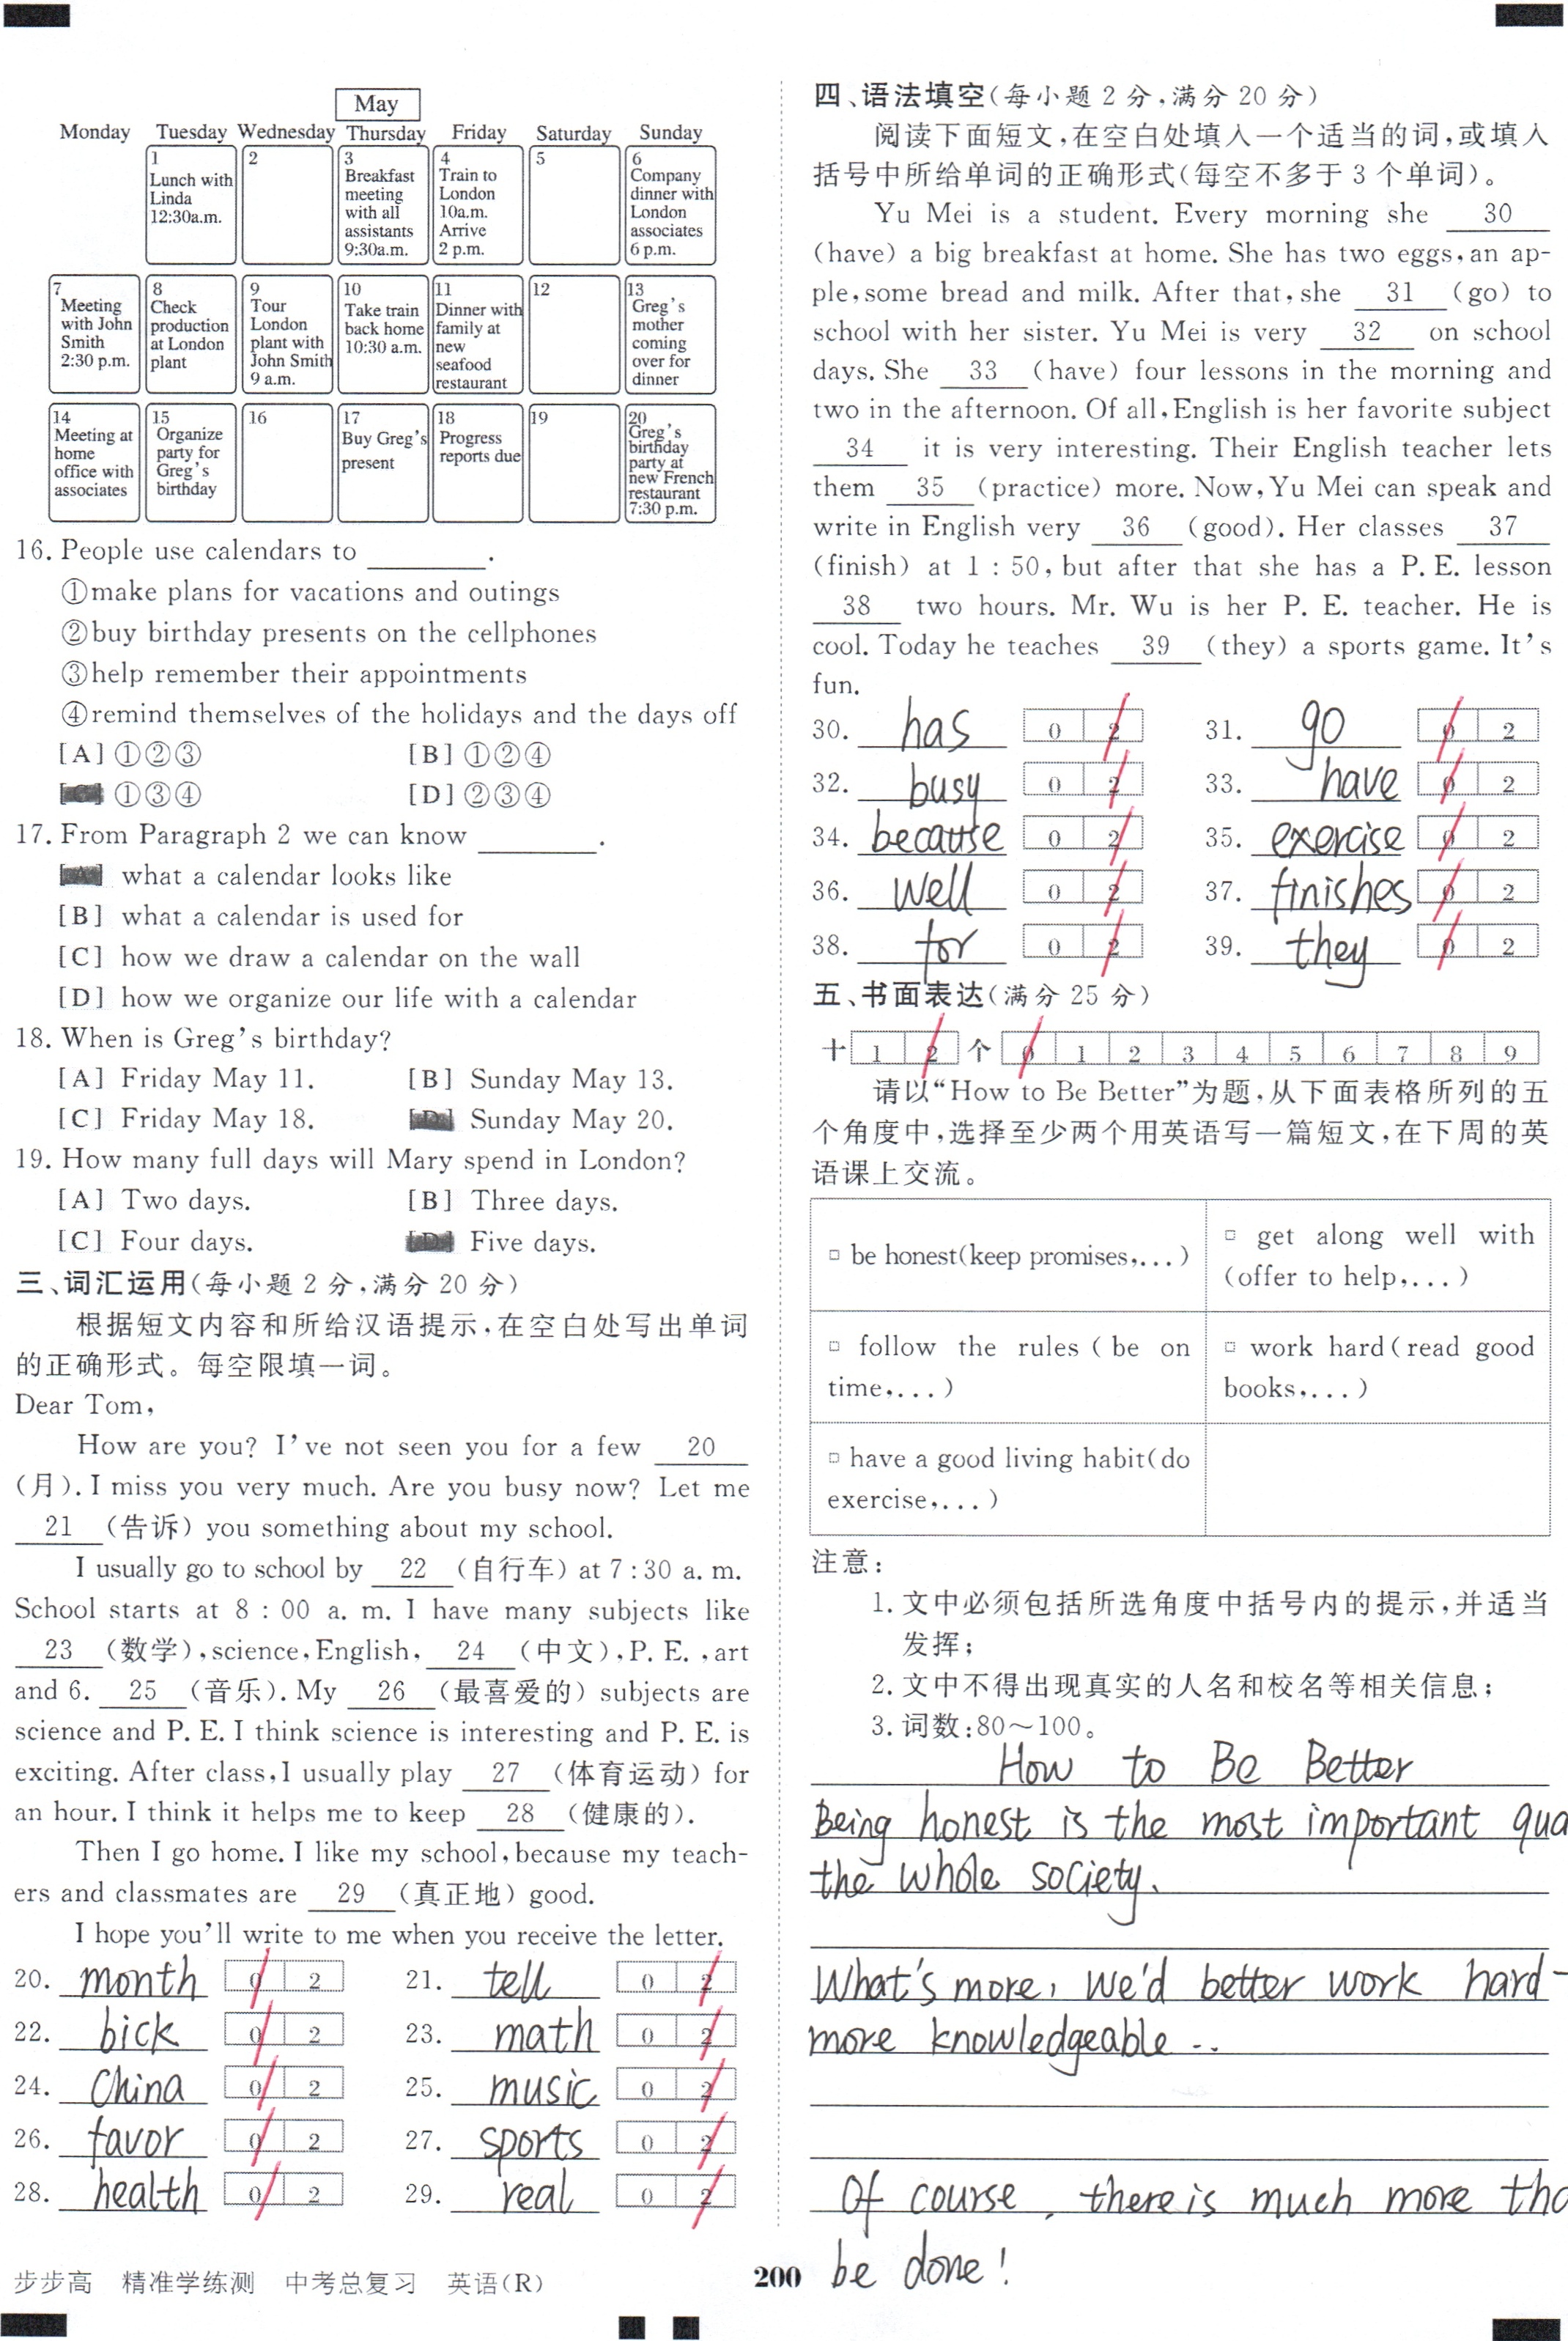 May
Monday Tuesday Wednesday Thursday Friday Saturday Sunday
1 Lunch with Linda 12:30a.m.
2
3 Breakfast meeting with all assistants 9:30a.m.
4 Train to London 10a.m. Arrive 2 p.m.
5
6 Company dinner with London associates 6 p.m.
7 Meeting with John Smith 2:30 p.m.
8 Check production at London plant
9 Tour London plant with John Smith 9 a.m.
10 Take train back home 10:30 a.m.
11 Dinner with family at new seafood restaurant
12
13 Greg's mother coming over for dinner
14 Meeting at home office with associates
15 Organize party for Greg's birthday
16
17 Buy Greg's present
18 Progress reports due
19
20 Greg's birthday party at new French restaurant 7:30 p.m.
16. People use calendars to ________.
①make plans for vacations and outings
②buy birthday presents on the cellphones
③help remember their appointments
④remind themselves of the holidays and the days off
[A] ①②③ [B] ①②④
[C] ①③④ [D] ②③④
17. From Paragraph 2 we can know ________.
[A] what a calendar looks like
[B] what a calendar is used for
[C] how we draw a calendar on the wall
[D] how we organize our life with a calendar
18. When is Greg's birthday?
[A] Friday May 11. [B] Sunday May 13.
[C] Friday May 18. [D] Sunday May 20.
19. How many full days will Mary spend in London?
[A] Two days. [B] Three days.
[C] Four days. [D] Five days.
三、词汇运用(每小题2分,满分20分)
根据短文内容和所给汉语提示,在空白处写出单词
的正确形式。每空限填一词。
Dear Tom,
How are you? I've not seen you for a few 20
(月). I miss you very much. Are you busy now? Let me
21 (告诉) you something about my school.
I usually go to school by 22 (自行车) at 7:30 a. m.
School starts at 8 : 00 a. m. I have many subjects like
23 (数学), science, English, 24 (中文), P. E. , art
and 6. 25 (音乐). My 26 (最喜爱的) subjects are
science and P. E. I think science is interesting and P. E. is
exciting. After class, I usually play 27 (体育运动) for
an hour. I think it helps me to keep 28 (健康的).
Then I go home. I like my school, because my teach-
ers and classmates are 29 (真正地) good.
I hope you'll write to me when you receive the letter.
20. month 0 2 21. tell 0 2
22. bick 0 2 23. math 0 2
24. China 0 2 25. music 0 2
26. favor 0 2 27. sports 0 2
28. health 0 2 29. real 0 2
步步高 精准学练测 中考总复习 英语(R)
200
四、语法填空(每小题2分,满分20分)
阅读下面短文,在空白处填入一个适当的词,或填入
括号中所给单词的正确形式(每空不多于3个单词)。
Yu Mei is a student. Every morning she 30
(have) a big breakfast at home. She has two eggs, an ap-
ple, some bread and milk. After that, she 31 (go) to
school with her sister. Yu Mei is very 32 on school
days. She 33 (have) four lessons in the morning and
two in the afternoon. Of all, English is her favorite subject
34 it is very interesting. Their English teacher lets
them 35 (practice) more. Now, Yu Mei can speak and
write in English very 36 (good). Her classes 37
(finish) at 1 : 50, but after that she has a P. E. lesson
38 two hours. Mr. Wu is her P. E. teacher. He is
cool. Today he teaches 39 (they) a sports game. It's
fun.
30. has 0 2 31. go 0 2
32. busy 0 2 33. have 0 2
34. because 0 2 35. exercise 0 2
36. well 0 2 37. finishes 0 2
38. for 0 2 39. they 0 2
五、书面表达(满分25分)
十 1 2 个 0 1 2 3 4 5 6 7 8 9
请以“How to Be Better”为题,从下面表格所列的五
个角度中,选择至少两个用英语写一篇短文,在下周的英
语课上交流。
□ be honest(keep promises,...)
□ get along well with
(offer to help,...)
□ follow the rules (be on
time,...)
□ work hard(read good
books,...)
□ have a good living habit(do
exercise,...)
注意:
1. 文中必须包括所选角度中括号内的提示,并适当
发挥;
2. 文中不得出现真实的人名和校名等相关信息;
3. 词数:80～100。
How to Be Better
Being honest is the most important qua
the whole society.
What's more, we'd better work hard-
more knowledgeable ..
Of course, there is much more tha
be done!